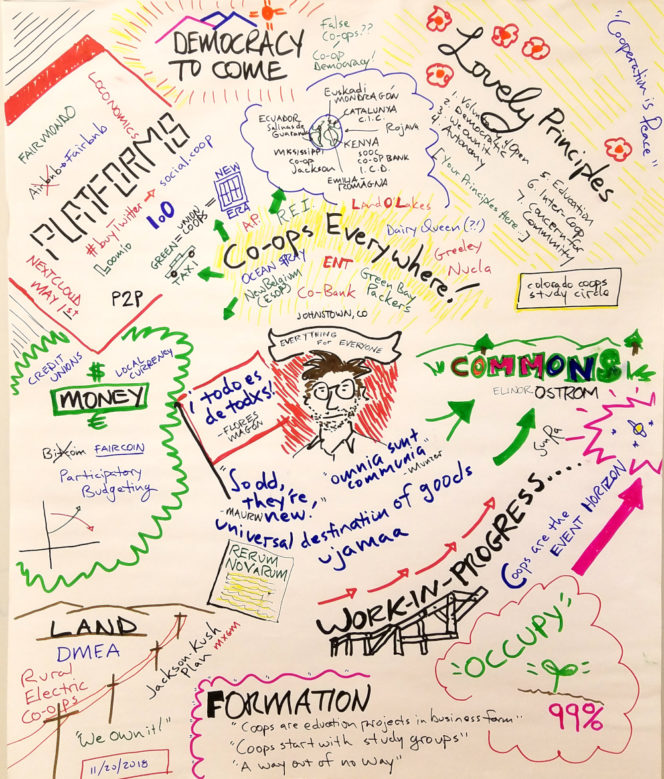 DEMOCRACY
TO COME
False
Co-ops??
Co-op
Democracy!
Lovely Principles
"Cooperation is Peace"
1. Voluntary
2. Democratic
3. We own it
4. Autonomy
5. Education
6. Inter-Coop
7. Concern for
Community
[Your Principles Here...]
Euskadi
MONDRAGÓN
ECUADOR
Salinas de
Guaranda
CATALUNYA
C.I.C.
ROJAVA
MISSISSIPPI
Co-op
Jackson
KENYA
CO-OP BANK
I.C.D.
EMILIA
ROMAGNA
PLATFORMS
FAIRMONDO
LOCONOMICS
Airbnb → Fairbnb
social.coop
#buyTwitter →
1.0
Loomio
NEXTCLOUD
MAY 1st
P2P
GREEN = UNION
TAXI COOPS =
NEW
ERA
TAX
Co-ops Everywhere!
A.P.
R.E.I.
Land O'Lakes
Dairy Queen (?!)
OCEAN SPRAY
New Belgium
(ESOP)
ENT
Green Bay
Packers
Greeley
Nucla
Co-Bank
JOHNSTOWN, CO
colorado coops
study circle
CREDIT
UNIONS
$
LOCAL
CURRENCY
MONEY
€
Bitcoin FAIRCOIN
Participatory
Budgeting
EVERYTHING
FOR EVERYONE
¡todo es
de todxs!
-FLORES
MAGÓN
"So old,
they're
new!"
-MAURIN
"omnia sunt
communia"
-Munzer
universal destination of goods
ujamaa
RERUM
NOVARUM
COMMONS
ELINOR OSTROM
Sun Ra
Coops are the
EVENT HORIZON
WORK-IN-PROGRESS....
"OCCUPY"
99%
LAND
DMEA
Rural
Electric
Co-ops
Jackson-Kush
Plan
MXGM
"We own it!"
11/20/2018
FORMATION
"Coops are eduation projects in business form"
"Coops start with study groups"
"A way out of no way"